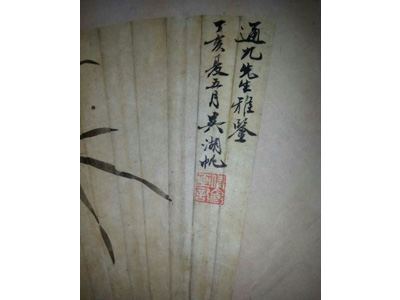 通九先生雅鑒
丁亥夏五月吳湖帆